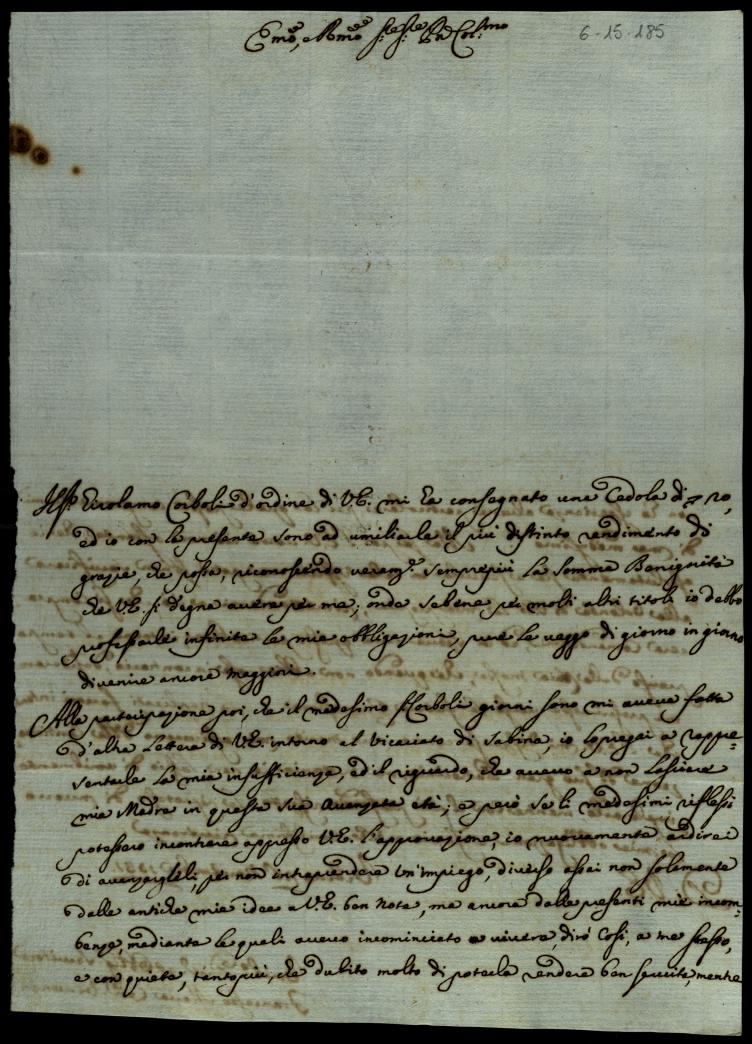 Emo, e Rmo Sig: Sig: Pñ Col:mo
6-15-185
Il Sig: Girolamo Corboli d'ordine di V.E. mi ha consegnato una Cedola di 20,
ed io con la presente sono ad umiliarle il più distinto rendimento di
grazie, che possa, riconoscendo veram.e semprepiù la somma Benignità
che V.E. si degna avere per me; onde sebene per molti altri titoli io debbo
professarle infinite le mie obbligazioni, pure le veggo di giorno in giorno
divenire ancora maggiori.
Alla partecipazione poi, che il medesimo S. Corboli giorni sono mi aveva fatta
d'altra Lettera di V.E. intorno al Vicariato di Sabina, io lo pregai a rappre-
sentarle la mia insufficienza, ed il riguardo, che avevo a non lasciare
mia Madre in questa sua avanzata età; e però se li medesimi riflessi
potessero incontrare appresso V.E. l'approvazione, io nuovamente ardirei
di avanzarglieli, per non intraprendere un'impiego, diverso assai non solamente
dalle antiche mie idee a V.E. ben note, ma ancora dalle presenti mie incom-
benze, mediante le quali avevo incominciato a vivere, dirò così, a me stesso,
e con quiete, tantopiù, che dubito molto di poterla rendere ben servita, mentre